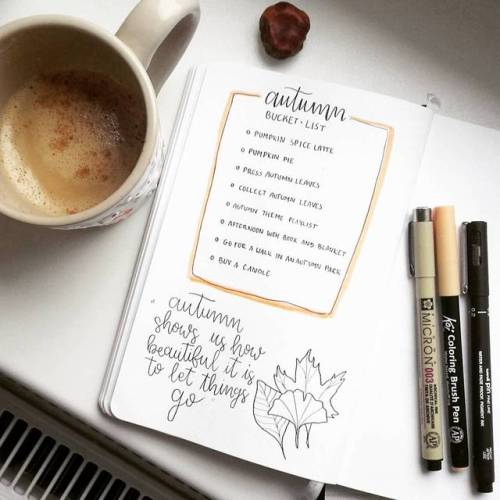 autumn
BUCKET • LIST
PUMPKIN SPICE LATTE
PUMPKIN PIE
PRESS AUTUMN LEAVES
COLLECT AUTUMN LEAVES
AUTUMN THEME PLAYLIST
AFTERNOON WITH BOOK AND BLANKET
GO FOR A WALK IN AN AUTUMN PARK
BUY A CANDLE
" autumn
shows us how
beautiful it is
to let things
go "
MICRON 003
Koi Coloring Brush Pen
PIN